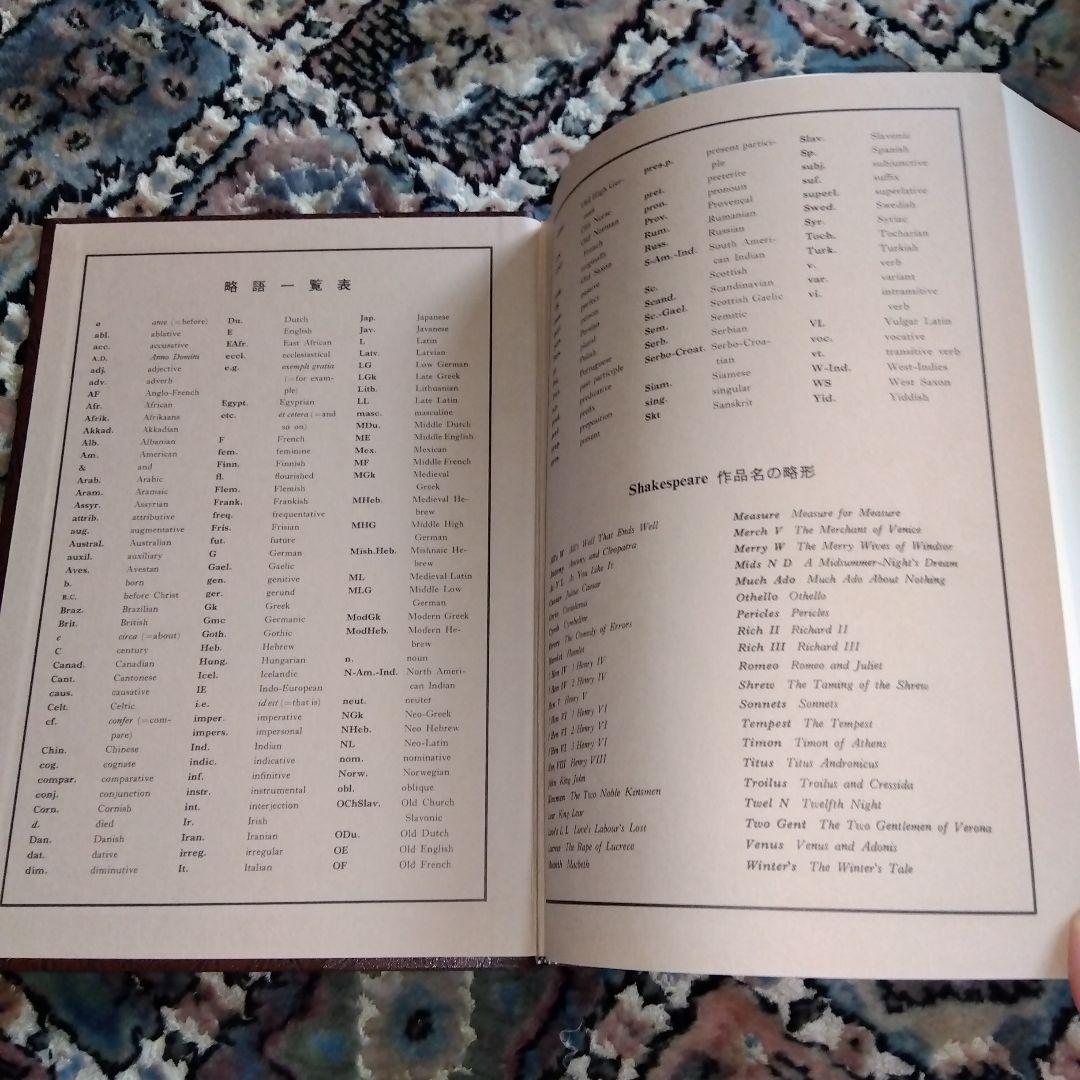 略語一覧表
a ante (=before)
abl. ablative
acc. accusative
A.D. Anno Domini
adj. adjective
adv. adverb
AF Anglo-French
Afr. African
Afrik. Afrikaans
Akkad. Akkadian
Alb. Albanian
Am. American
& and
Arab. Arabic
Aram. Aramaic
Assyr. Assyrian
attrib. attributive
aug. augmentative
Austral. Australian
auxil. auxiliary
Aves. Avestan
b. born
B.C. before Christ
Braz. Brazilian
Brit. British
c circa (=about)
C century
Canad. Canadian
Cant. Cantonese
caus. causative
Celt. Celtic
cf. confer (=com-
pare)
Chin. Chinese
cog. cognate
compar. comparative
conj. conjunction
Corn. Cornish
d. died
Dan. Danish
dat. dative
dim. diminutive
Du. Dutch
E English
EAfr. East African
eccl. ecclesiastical
e.g. exempli gratia
(=for exam-
ple)
Egypt. Egyptian
etc. et cetera (=and
so on)
F French
fem. feminine
Finn. Finnish
fl. flourished
Flem. Flemish
Frank. Frankish
freq. frequentative
Fris. Frisian
fut. future
G German
Gael. Gaelic
gen. genitive
ger. gerund
Gk Greek
Gmc Germanic
Goth. Gothic
Heb. Hebrew
Hung. Hungarian
Icel. Icelandic
IE Indo-European
i.e. id est (=that is)
imper. imperative
impers. impersonal
Ind. Indian
indic. indicative
inf. infinitive
instr. instrumental
int. interjection
Ir. Irish
Iran. Iranian
irreg. irregular
It. Italian
Jap. Japanese
Jav. Javanese
L Latin
Latv. Latvian
LG Low German
LGk Late Greek
Lith. Lithuanian
LL Late Latin
masc. masculine
MDu. Middle Dutch
ME Middle English
Mex. Mexican
MF Middle French
MGk Medieval
Greek
MHeb. Medieval He-
brew
MHG Middle High
German
Mish.Heb. Mishnaic He-
brew
ML Medieval Latin
MLG Middle Low
German
ModGk Modern Greek
ModHeb. Modern He-
brew
n. noun
N-Am.-Ind. North Ameri-
can Indian
neut. neuter
NGk Neo-Greek
NHeb. Neo Hebrew
NL Neo-Latin
nom. nominative
Norw. Norwegian
obl. oblique
OChSlav. Old Church
Slavonic
ODu. Old Dutch
OE Old English
OF Old French
Old High Ger-
man
Old Norse
Old Norman
French
originally
Old Saxon
passive
perfect
person
Persian
plural
Polish
Portuguese
past participle
predicative
prefix
preposition
present
pres.p. present partici-
ple
pret. preterite
pron. pronoun
Prov. Provençal
Rum. Rumanian
Russ. Russian
S-Am.-Ind. South Ameri-
can Indian
Sc. Scottish
Scand. Scandinavian
Sc.-Gael. Scottish Gaelic
Sem. Semitic
Serb. Serbian
Serbo-Croat. Serbo-Croa-
tian
Siam. Siamese
sing. singular
Skt Sanskrit
Slav. Slavonic
Sp. Spanish
subj. subjunctive
suf. suffix
superl. superlative
Swed. Swedish
Syr. Syriac
Toch. Tocharian
Turk. Turkish
v. verb
var. variant
vi. intransitive
verb
VL Vulgar Latin
voc. vocative
vt. transitive verb
W-Ind. West-Indies
WS West Saxon
Yid. Yiddish
Shakespeare 作品名の略形
All's W All's Well That Ends Well
Antony Antony and Cleopatra
As Y L As You Like It
Caesar Julius Caesar
Corio Coriolanus
Cymb Cymbeline
Errors The Comedy of Errors
Hamlet Hamlet
1 Hen IV 1 Henry IV
2 Hen IV 2 Henry IV
Hen V Henry V
1 Hen VI 1 Henry VI
2 Hen VI 2 Henry VI
3 Hen VI 3 Henry VI
Hen VIII Henry VIII
John King John
Kinsmen The Two Noble Kinsmen
Lear King Lear
Love's L L Love's Labour's Lost
Lucrece The Rape of Lucrece
Macbeth Macbeth
Measure Measure for Measure
Merch V The Merchant of Venice
Merry W The Merry Wives of Windsor
Mids N D A Midsummer-Night's Dream
Much Ado Much Ado About Nothing
Othello Othello
Pericles Pericles
Rich II Richard II
Rich III Richard III
Romeo Romeo and Juliet
Shrew The Taming of the Shrew
Sonnets Sonnets
Tempest The Tempest
Timon Timon of Athens
Titus Titus Andronicus
Troilus Troilus and Cressida
Twel N Twelfth Night
Two Gent The Two Gentlemen of Verona
Venus Venus and Adonis
Winter's The Winter's Tale